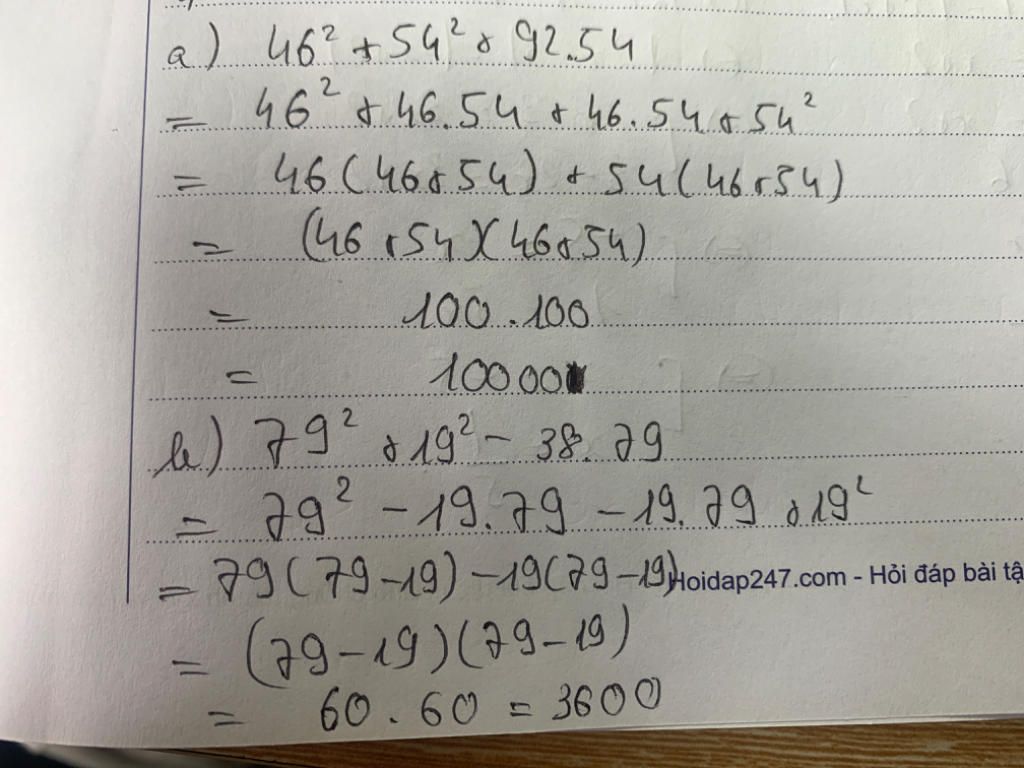 a) 46² + 54² + 92.54
= 46² + 46.54 + 46.54 + 54²
= 46(46+54) + 54(46+54)
= (46+54)(46+54)
= 100.100
= 10000
b) 79² + 19² - 38.79
= 79² - 19.79 - 19.79 + 19²
= 79(79-19) - 19(79-19)
Hoidap247.com - Hỏi đáp bài tậ
= (79-19)(79-19)
= 60.60 = 3600